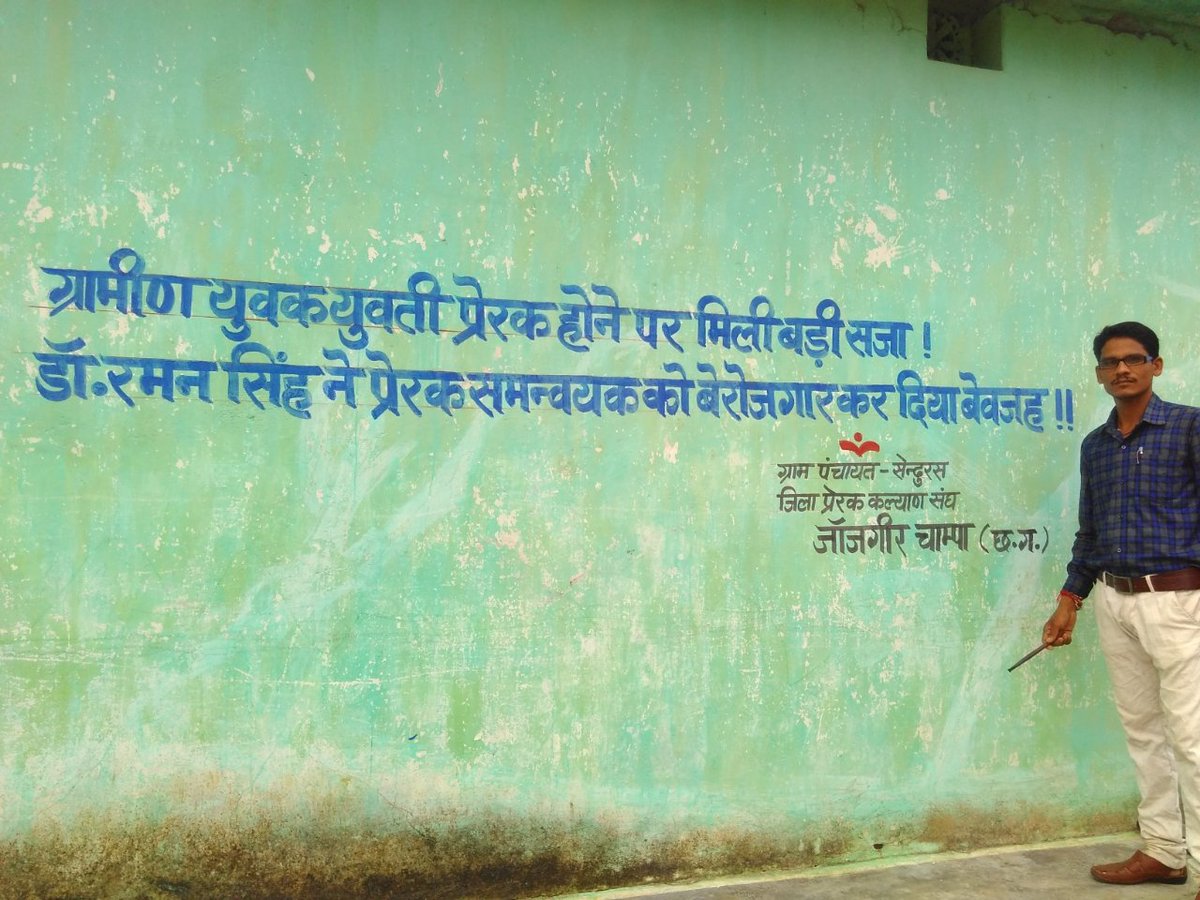 ग्रामीण युवक युवती प्रेरक होने पर मिली बड़ी सजा !
डॉ. रमन सिंह ने प्रेरक समन्वयक को बेरोजगार कर दिया बेवजह !!
ग्राम पंचायत - सेन्दुरस
जिला प्रेरक कल्याण संघ
जॉजगीर चाम्पा (छ.ग.)